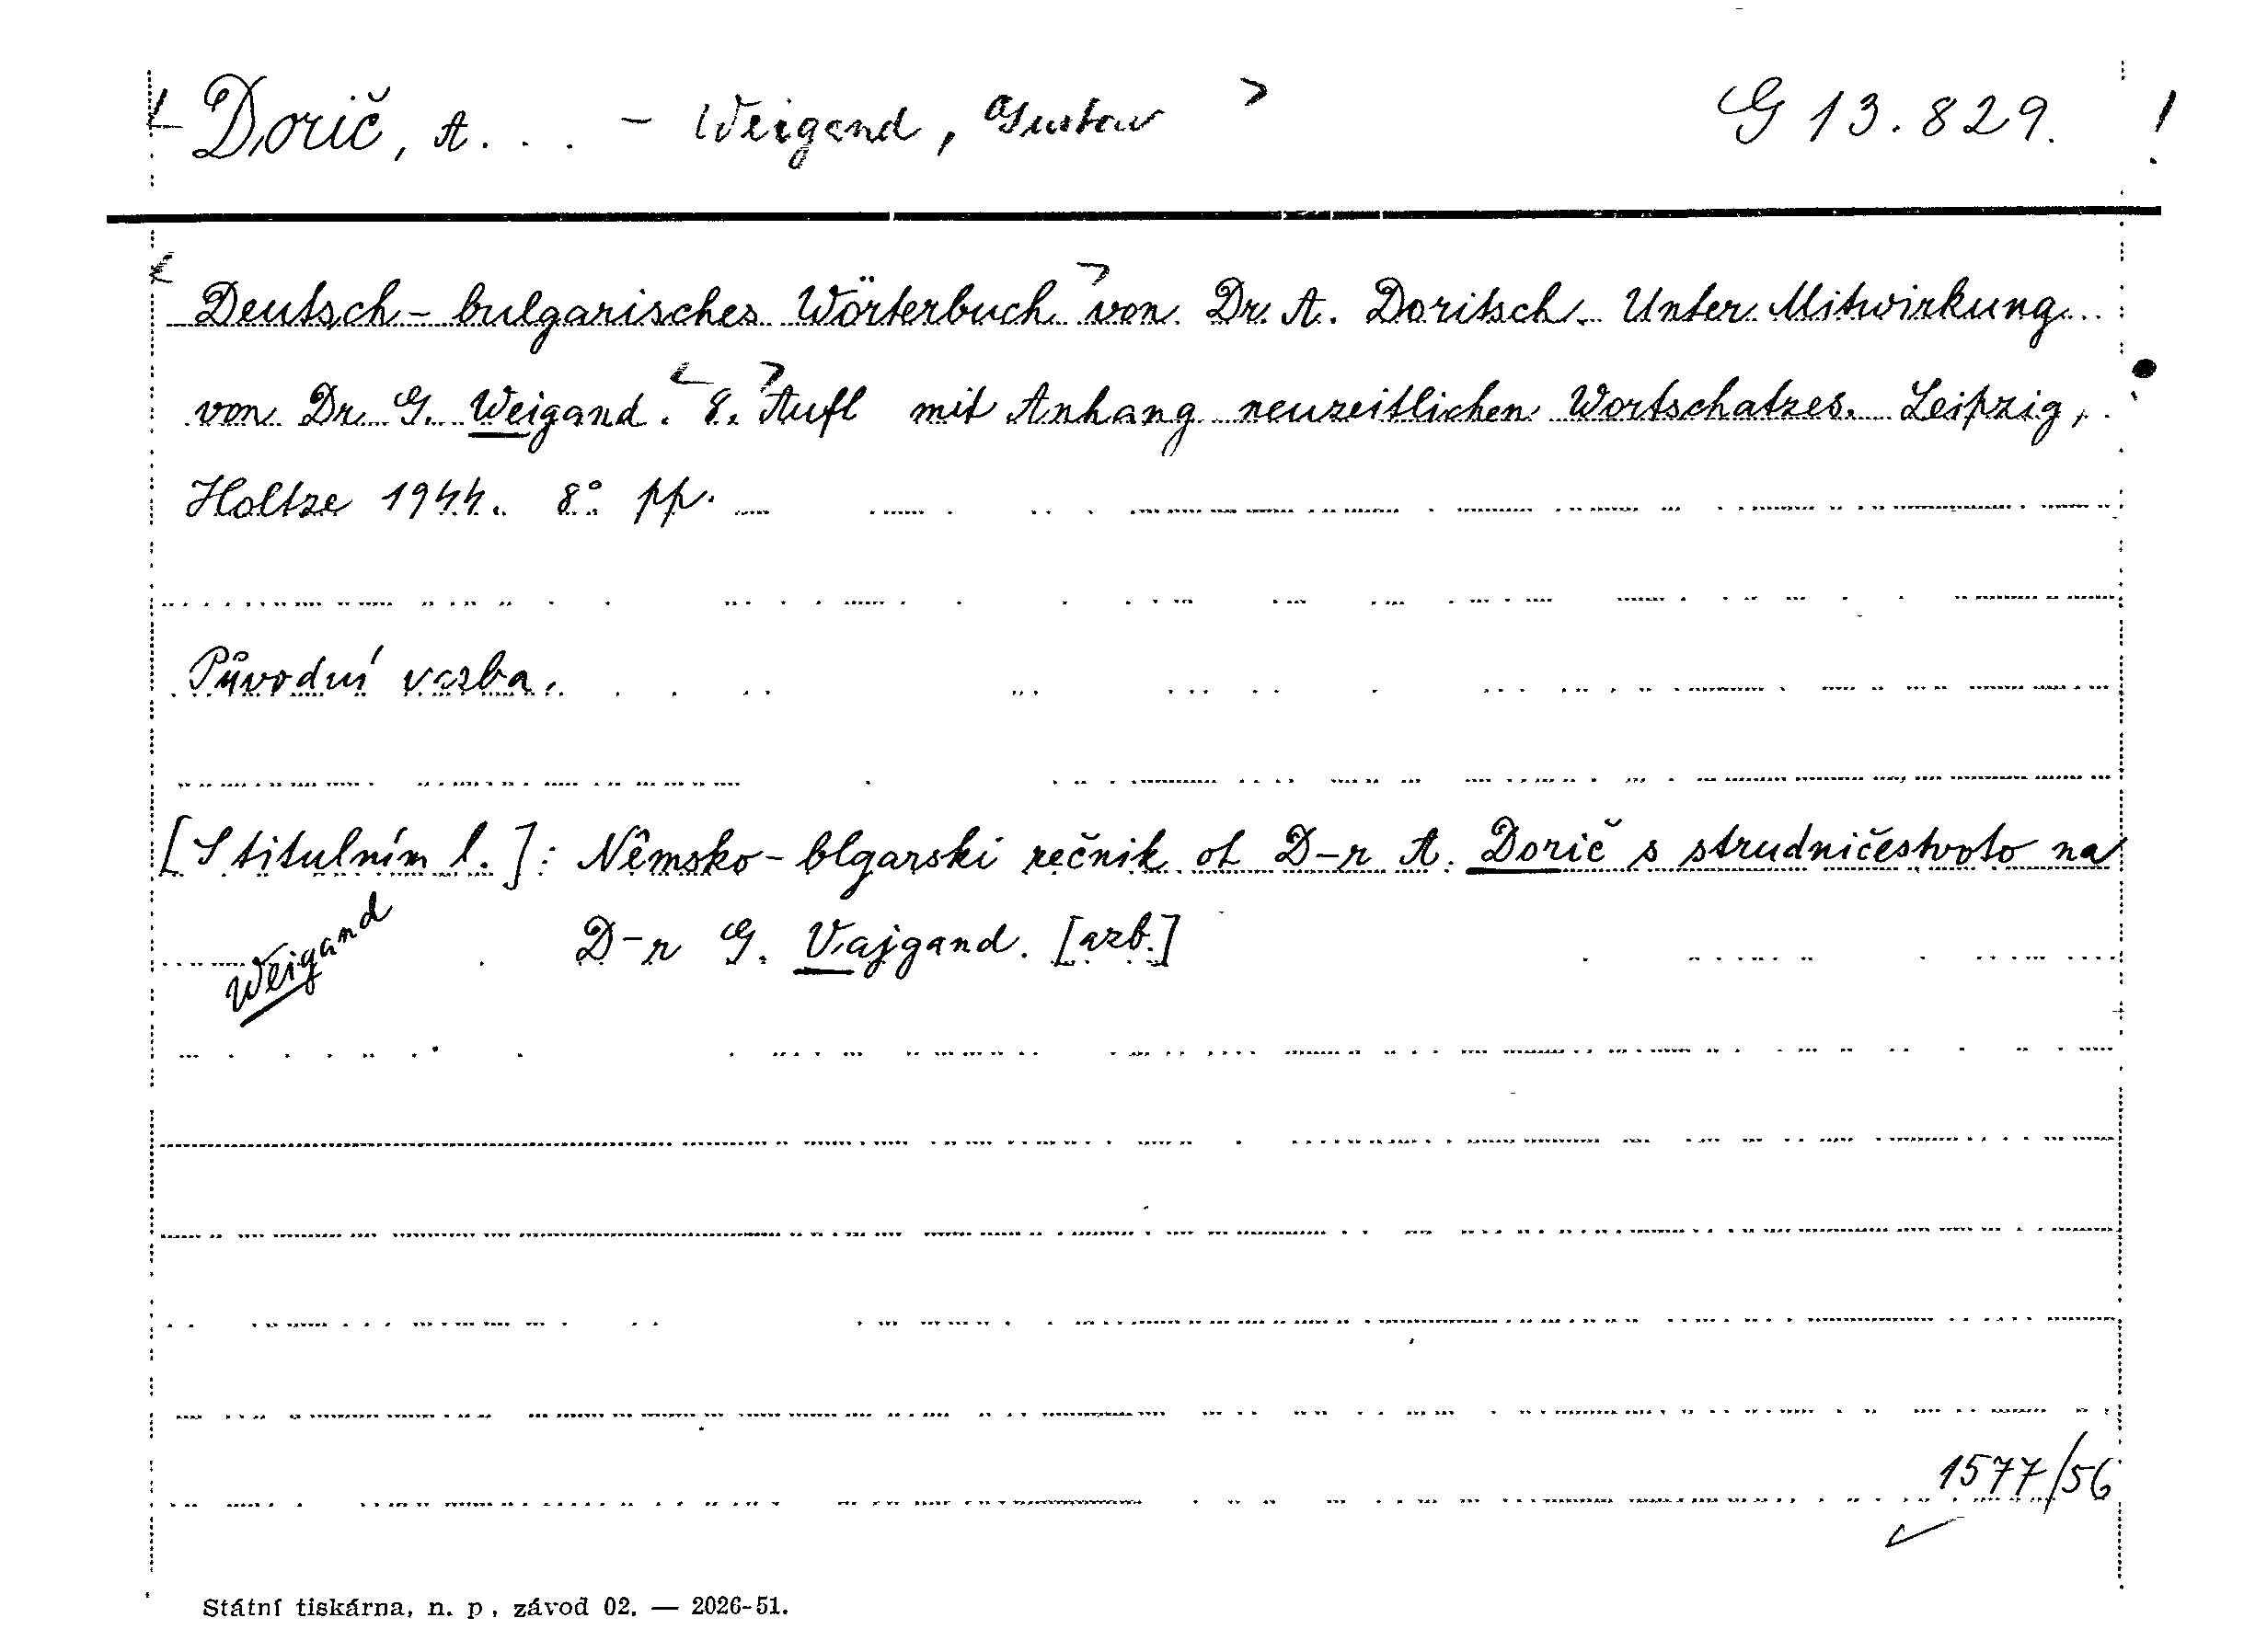 Dorič, A. . . - Weigand, Gustav > G 13.829. !
Deutsch-bulgarisches Wörterbuch von Dr. A. Doritsch. Unter Mitwirkung
von Dr. G. Weigand. 8. Aufl mit Anhang neuzeitlichen Wortschatzes. Leipzig,
Holtze 1944. 8° pp.
Původní vazba.
[S titulním l.]: Němsko-blgarski rečnik ot D-r A. Dorič s strudničestvoto na
D-r G. Vajgand. [azb.]
Weigand
1577/56
Státní tiskárna, n. p., závod 02. — 2026-51.